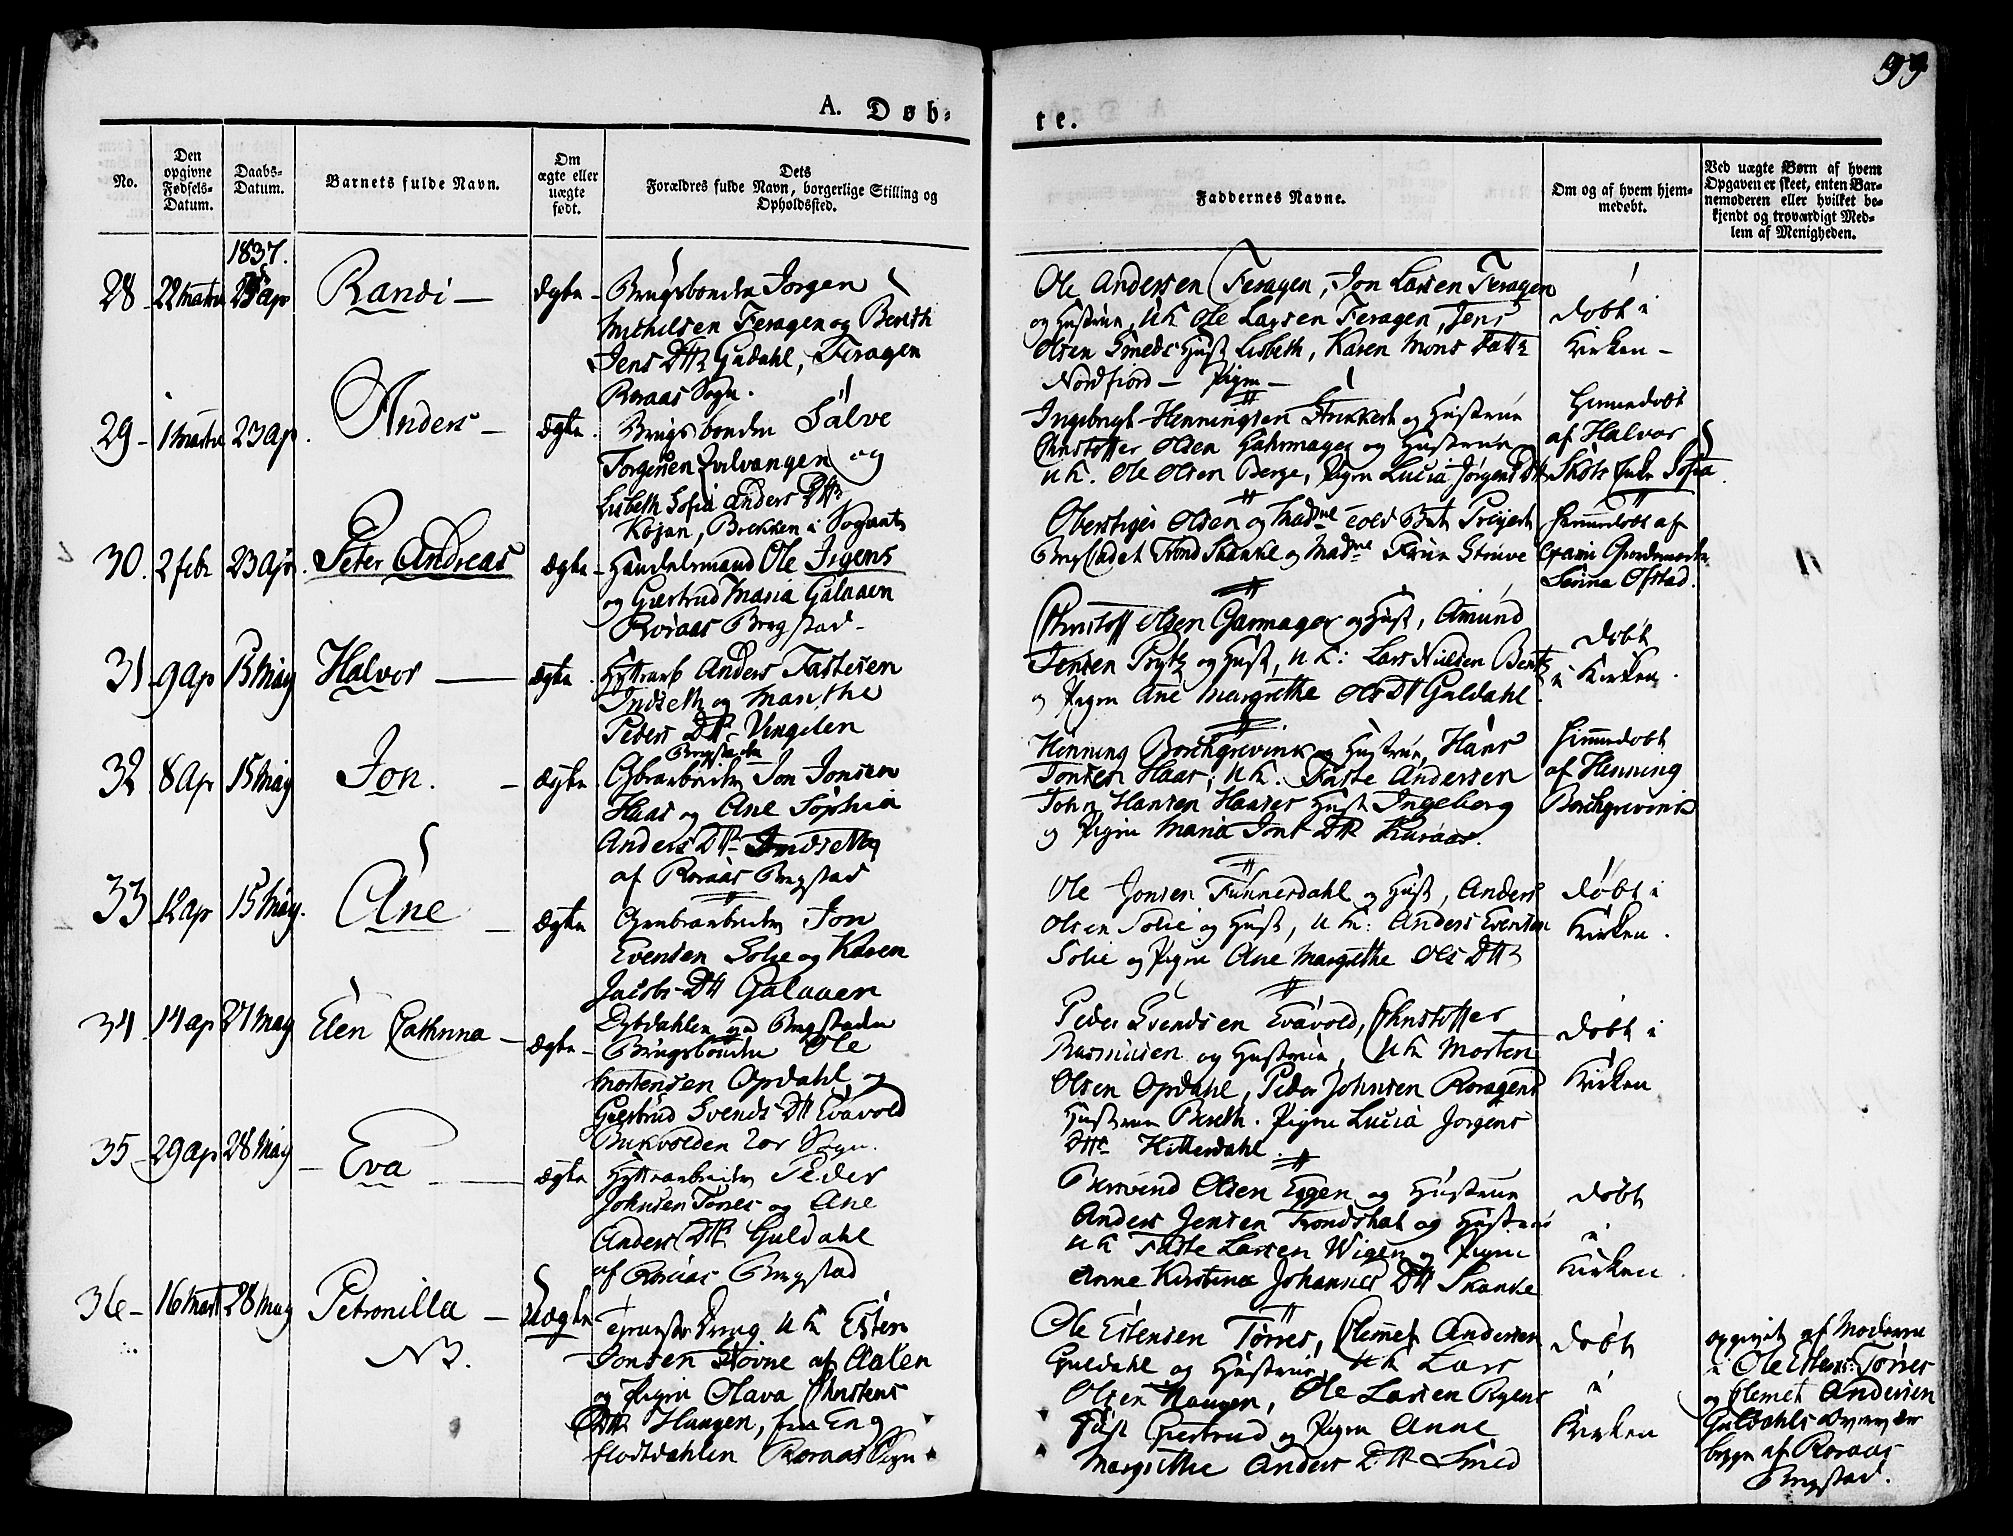 99
A. Døb-
te.
No.
Den opgivne Fødsels-Datum.
Daabs-Datum.
Barnets fulde Navn.
Om ægte eller uægte født.
Dets Forældres fulde Navn, borgerlige Stilling og Opholdssted.
Faddernes Navne.
Om og af hvem hjem-
medøbt.
Ved uægte Børn af hvem
Opgaven er skeet, enten Bar-
nemoderen eller hvilket be-
kjendt og troværdigt Med-
lem af Menigheden.
1837.
28 22 Martz ap Randi — ægte
Brugsbonden Jorgen
Michelsen Feragen og Bereth
Jens Dtt Gudahl, Feragen
Roraas Sogn.
Ole Andersen Feragen, Jon Larsen Feragen
og Hustrue, UK Ole Larsen Feragen, Jens
Olsen Smeds Hust Lisbeth, Karen Mons Datt
Nordfiord — Pigen —
døbt i
Kirken —
29 — 1 Martz 23 ap. Anders — ægte.
Brugsbonden Salve
Torgersen Evilvangen og
Lisbeth Sofia Anders Dtt
Kojan, Brekken i Sognet
Ingebrigt Henningsen og Hustrue
Christoffer Olsen Garmager og Hustrue
UK. Ole Olsen Berge, Pigen Lucia Jorgens Dtt
Hjemmedøbt
af Halvor
Sofia
30. 2 febr 23 Apr. Peter Andreas ægte —
Handelsmand Ole Irgens
og Gjertrud Maria Galaaen
Roraas Bergstad —
Olsen og Mad
Trond Skanke og Mad Struve
Hjemmedøbt af
Ofstad.
31 9 ap 15 May Halvor — ægte
Hyttearb Anders Fastesen
Indseth og Marithe
Peders Dtt Vingelen
Christoff Olsen Garmager og Hust, Amund
Jensen Prytz og Hust, UK: Lars Nielsen Bentz
og Pigen Ane Margrethe Ols Dtt Guldahl.
døbt
i Kirken.
32 8 ap 15 May Jon. — ægte
Bergstaden
Jon Jonsen
Haas og Ane Sophia
Anders Dtt Indseth
af Roraas Bergstad
Henning Borchgrevink og Hustrue, Hans
Jonsen Haas, UK. Faste Andersen
John Hansen Haases Hust Ingeborg
og Pigen Maria Jons Dtt Kuraas.
Hjemmedøbt
af Henning
Borchgrevink
33 12 ap 15 May. Ane — ægte
Grubearbeider Jon
Evensen Solie og Karen
Jacobs Dtt Galaaen
Dybdahlen ved Bergstaden
Ole Jonsen Tunnesdahl og Hust, Anders
Olsen Solie og Hust, UK: Anders Evensen
Solie og Pigen Ane Margrethe Ols Dtt
døbt i
Kirken.
34 14 ap 27 May Elen Cathrina — ægte —
Brugsbonden Ole
Mortensen Opdahl og
Gjertrud Svends Dtt Evavold
Sogn.
Peder Svendsen Evavold, Christoffer
Rasmusen og Hustrue, UK Morten
Olsen Opdahl, Peder Johnsen Roragens
Hustrue Bereth. Pigen Lucia Jorgens
Dtt Hitterdahl.
døbt i
Kirken
35 — 29 ap 28 May — Eva — ægte
Hyttearbeider Peder
Johnsen Torres og Ane
Anders Dtt Guldahl
af Roraas Bergstad
Olsen Eggen og Hustrue
Anders Jensen Trondshat og Hustrue
UK Faste Larsen Wigen og Pigen
Anne Kirstina Johannes Dtt Skanke
døbt
i
Kirken.
36 — 16 Mart 28 May Petronilla — Uægte
NB.
UK Esten
Jonsen Stovne af Aalen
og Pigen Olava Christens
Dtt Haugen, fra Eng
flodtdahlen Roraas Sogn
Ole Estensen Torres, Clemet Andersen
Guldahl og Hustrue, UK Lars
Olsen Haugen, Ole Larsen Ryens
Hust Gjertrud og Pigen Anne
Margrethe Anders Dtt Smed
døbt
i
Kirken
opgivet af Moderen
i Ole Estens: Torres
og Clemet Andersen
Guldahls Overvær
begge af Roraas
Bergstad.